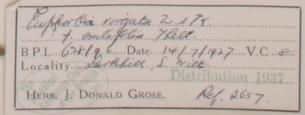 Euphorbia virgata W. & K.
B.P.L. 628/9 Date 14/7/1927 V.C. 8
Locality Larkhill, S. Wilt
Distribution 1937
HERB. J. DONALD GROSE. Ref. 2657.